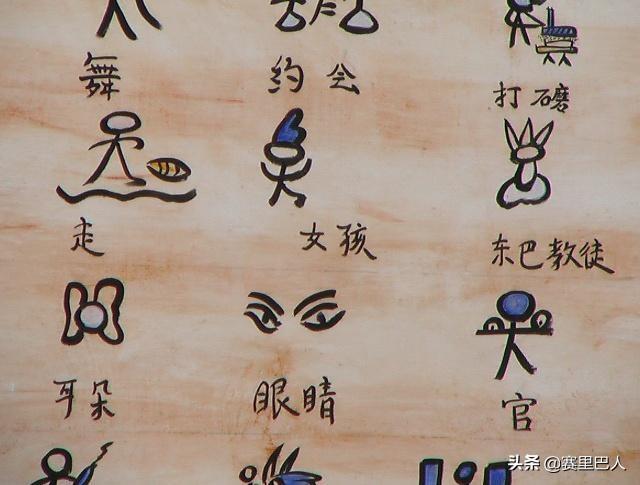 舞 约会 打磨
走 女孩 东巴教徒
耳朵 眼睛 官
头条 @赛里巴人